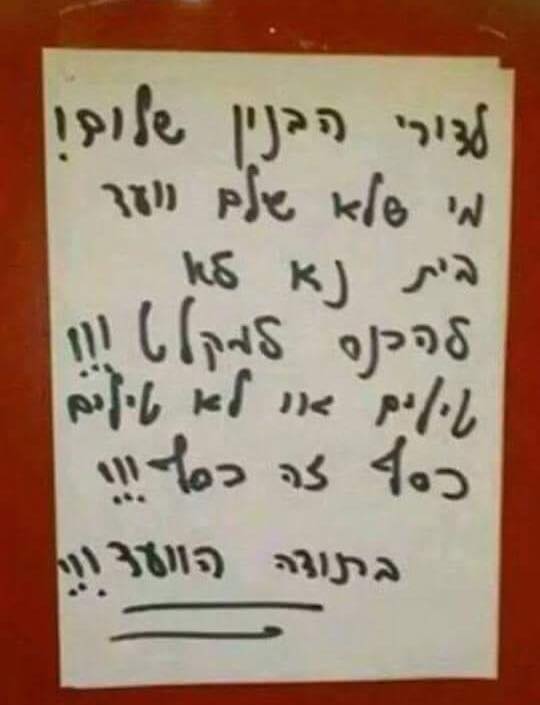 לדורי הבנין שלום!
מי שלא שלם וועד
בית נא לא
להכנס למקלט !!!
טילים או לא טילים
כסף זה כסף !!!
בתודה הוועד !!!